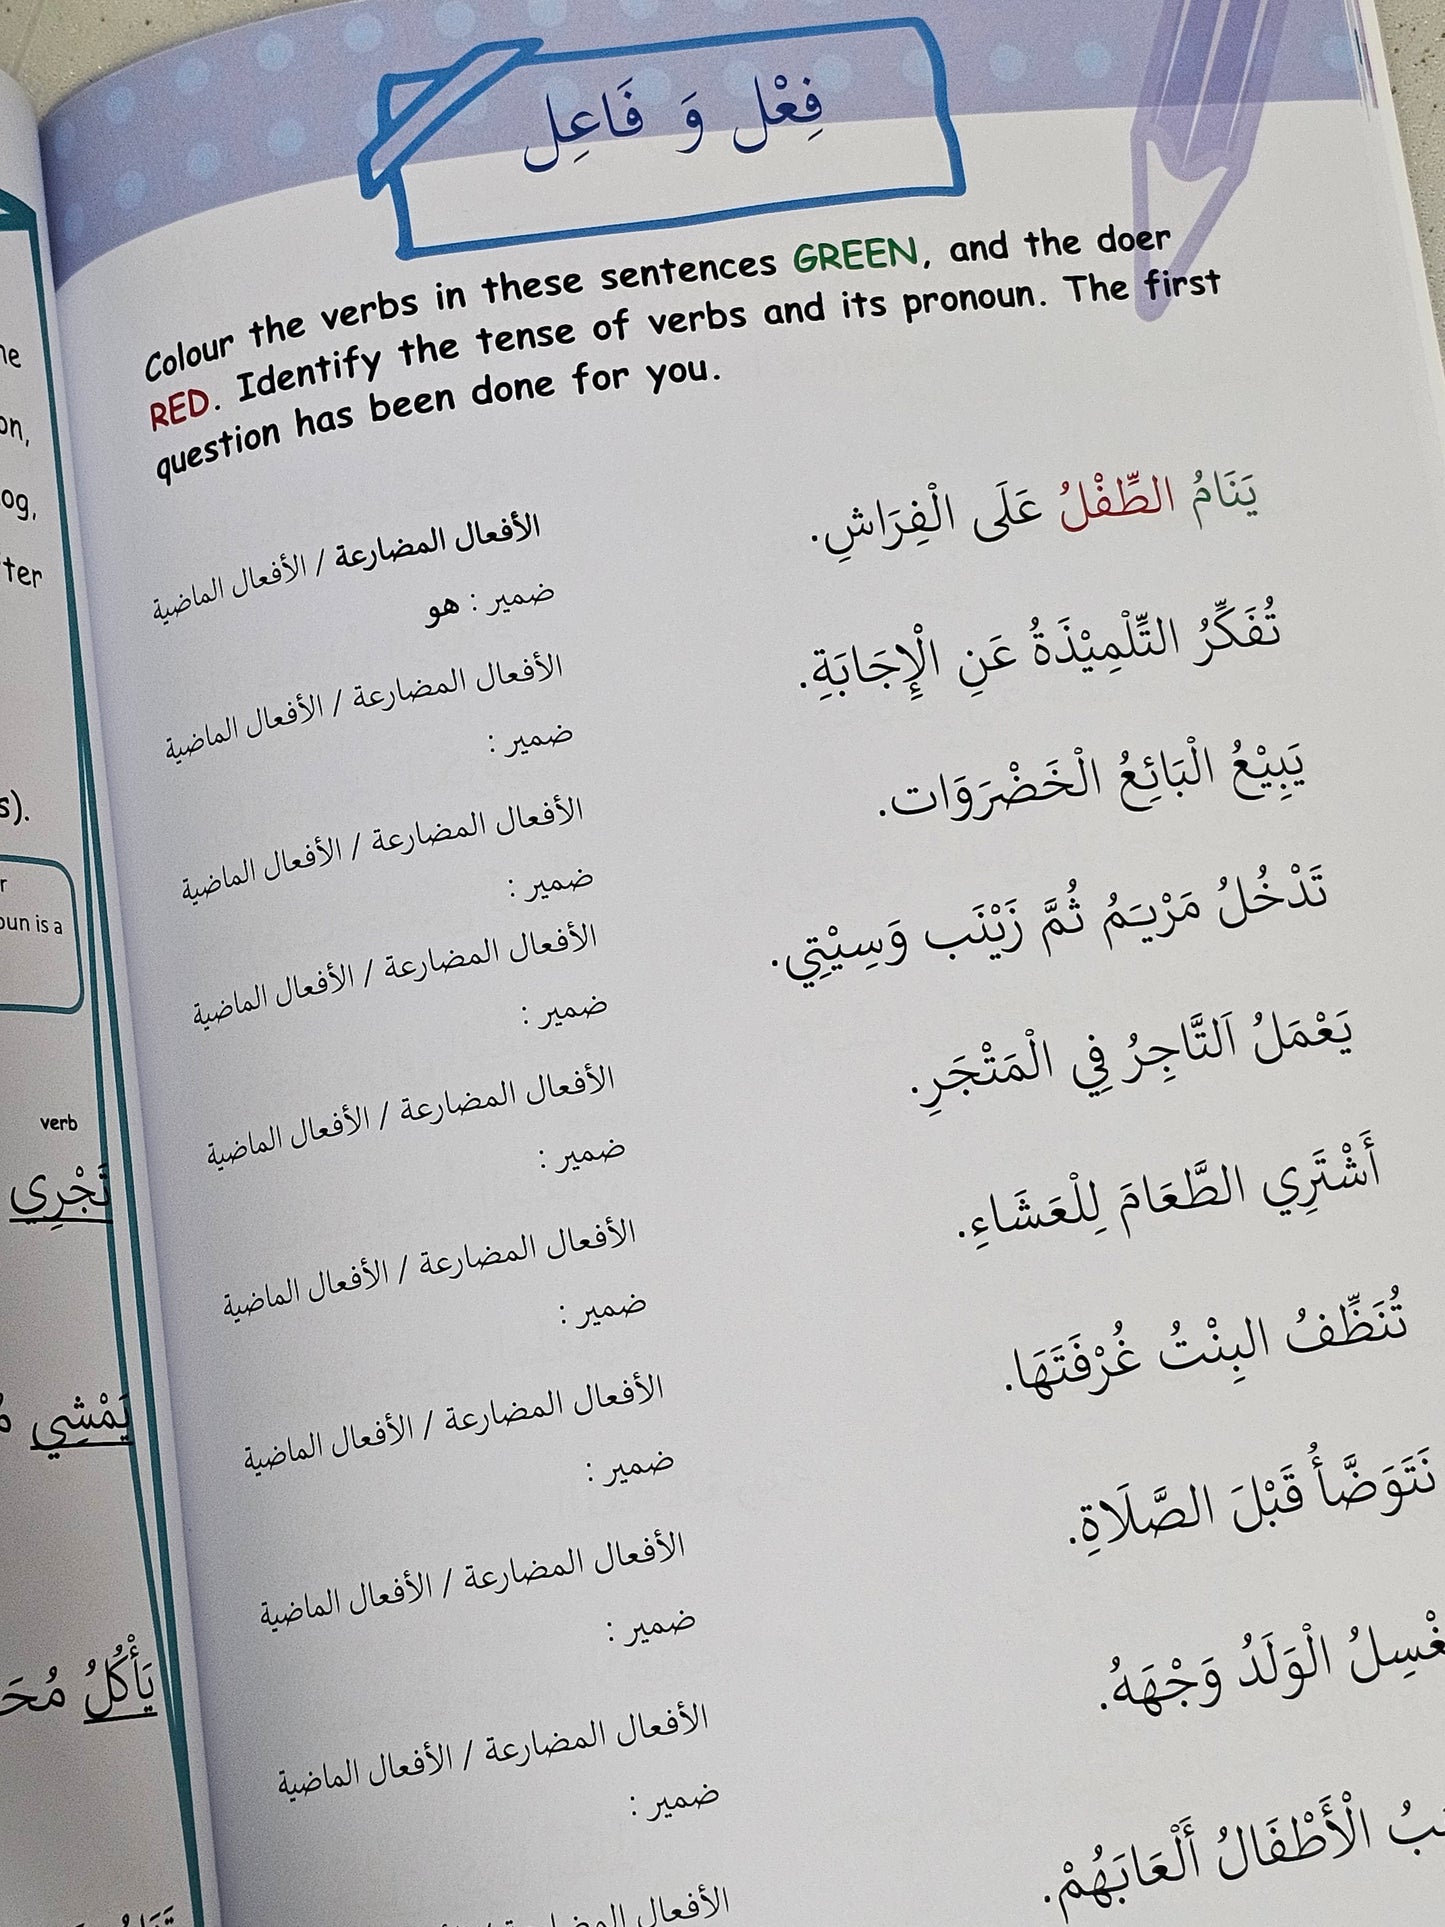 فِعْل وَ فَاعِل
Colour the verbs in these sentences GREEN, and the doer
RED. Identify the tense of verbs and its pronoun. The first
question has been done for you.
يَنَامُ الطِّفْلُ عَلَى الْفِرَاشِ.
الأفعال المضارعة / الأفعال الماضية
ضمير : هو
تُفَكِّرُ التِّلْمِيْذَةُ عَنِ الْإِجَابَةِ.
الأفعال المضارعة / الأفعال الماضية
ضمير :
يَبِيْعُ الْبَائِعُ الْخَضْرَوَات.
الأفعال المضارعة / الأفعال الماضية
ضمير :
تَدْخُلُ مَرْيَمُ ثُمَّ زَيْنَب وَسِيْتِي.
الأفعال المضارعة / الأفعال الماضية
ضمير :
يَعْمَلُ اَلتَّاجِرُ فِي الْمَتْجَرِ.
الأفعال المضارعة / الأفعال الماضية
ضمير :
أَشْتَرِي الطَّعَامَ لِلْعَشَاءِ.
الأفعال المضارعة / الأفعال الماضية
ضمير :
تُنَظِّفُ البِنْتُ غُرْفَتَهَا.
الأفعال المضارعة / الأفعال الماضية
ضمير :
نَتَوَضَّأُ قَبْلَ الصَّلَاةِ.
الأفعال المضارعة / الأفعال الماضية
ضمير :
الْوَلَدُ وَجْهَهُ.
الأفعال المضارعة / الأفعال الماضية
ضمير :
الْأَطْفَالُ أَلْعَابَهُمْ.
الأفعال
oun is a
verb
تَجْرِي
يَمْشِي
يَأْكُلُ